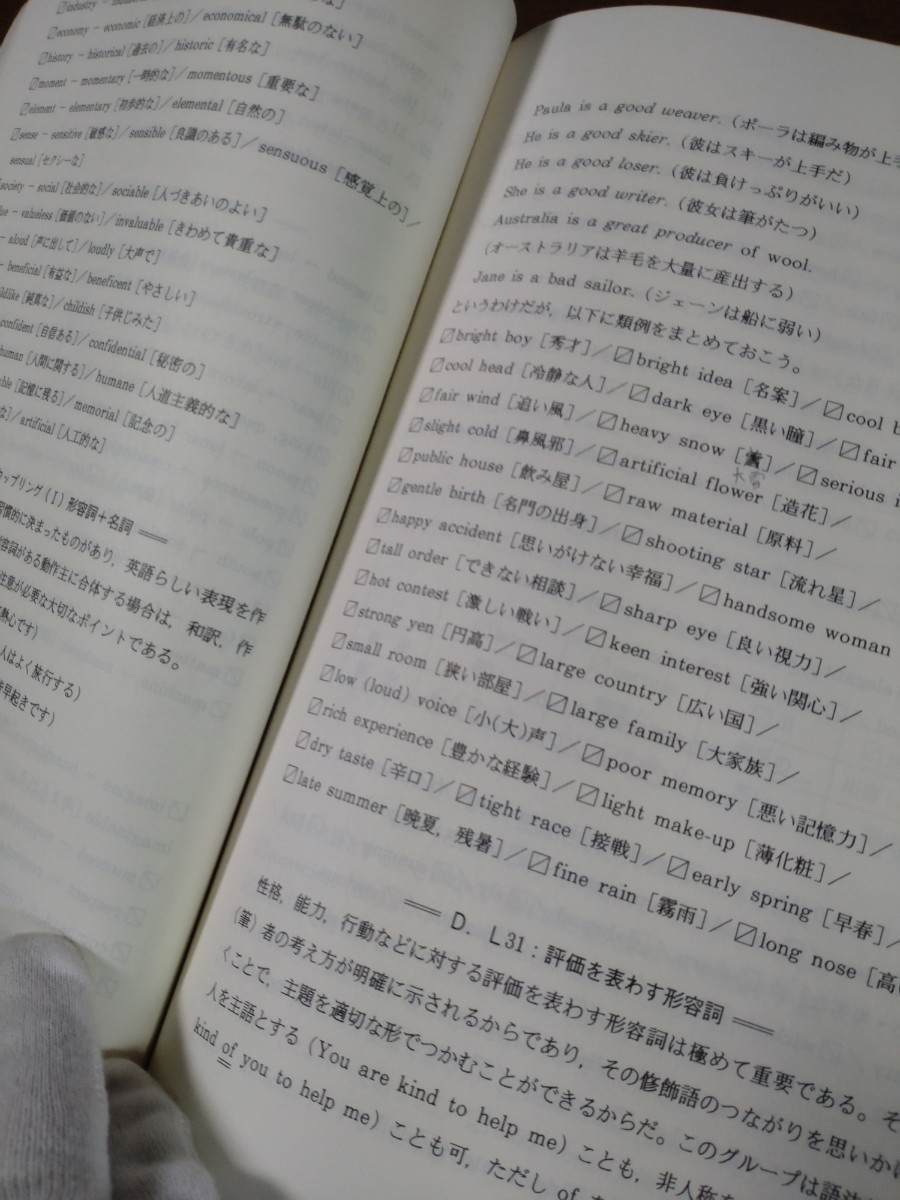 industry –
economy – economic [経済上の]／economical [無駄のない]
history – historical [過去の]／historic [有名な]
moment – momentary [一時的な]／momentous [重要な]
element – elementary [初歩的な]／elemental [自然の]
sense – sensitive [敏感な]／sensible [良識のある]／sensuous [感覚上の]／
sensual [セクシーな]
society – social [社会的な]／sociable [人づきあいのよい]
– valueless [価値のない]／invaluable [きわめて貴重な]
– aloud [声に出して]／loudly [大声で]
– beneficial [有益な]／beneficent [やさしい]
childlike [純真な]／childish [子供じみた]
confident [自信ある]／confidential [秘密の]
human [人間に関する]／humane [人道主義的な]
[記憶に残る]／memorial [記念の]
／artificial [人工的な]
カップリング(1) 形容詞＋名詞
習慣的に決まったものがあり，英語らしい表現を作
容詞がある動作主に合体する場合は，和訳，作
注意が必要な大切なポイントである。
熱心です)
人はよく旅行する)
早起きです)
Paula is a good weaver. (ポーラは編み物が上手
He is a good skier. (彼はスキーが上手だ)
He is a good loser. (彼は負けっぷりがいい)
She is a good writer. (彼女は筆がたつ)
Australia is a great producer of wool.
(オーストラリアは羊毛を大量に産出する)
Jane is a bad sailor. (ジェーンは船に弱い)
というわけだが，以下に類例をまとめておこう。
bright boy [秀才]／bright idea [名案]／cool
cool head [冷静な人]／dark eye [黒い瞳]／fair
fair wind [追い風]／heavy snow／serious
slight cold [鼻風邪]／artificial flower [造花]／
大雪
public house [飲み屋]／raw material [原料]／
gentle birth [名門の出身]／shooting star [流れ星]／
happy accident [思いがけない幸福]／handsome woman
tall order [できない相談]／sharp eye [良い視力]／
hot contest [激しい戦い]／keen interest [強い関心]／
strong yen [円高]／large country [広い国]／
small room [狭い部屋]／large family [大家族]／
low (loud) voice [小(大)声]／poor memory [悪い記憶力]／
rich experience [豊かな経験]／light make-up [薄化粧]／
dry taste [辛口]／tight race [接戦]／early spring [早春]／
late summer [晩夏，残暑]／fine rain [霧雨]／long nose [高
D. L31：評価を表わす形容詞
性格，能力，行動などに対する評価を表わす形容詞は極めて重要である。そ
(筆)者の考え方が明確に示されるからであり，その修飾語のつながりを思いか
くことで，主題を適切な形でつかむことができるからだ。このグループは語
人を主語とする (You are kind to help me) ことも，非人称
kind of you to help me) ことも可，ただし of